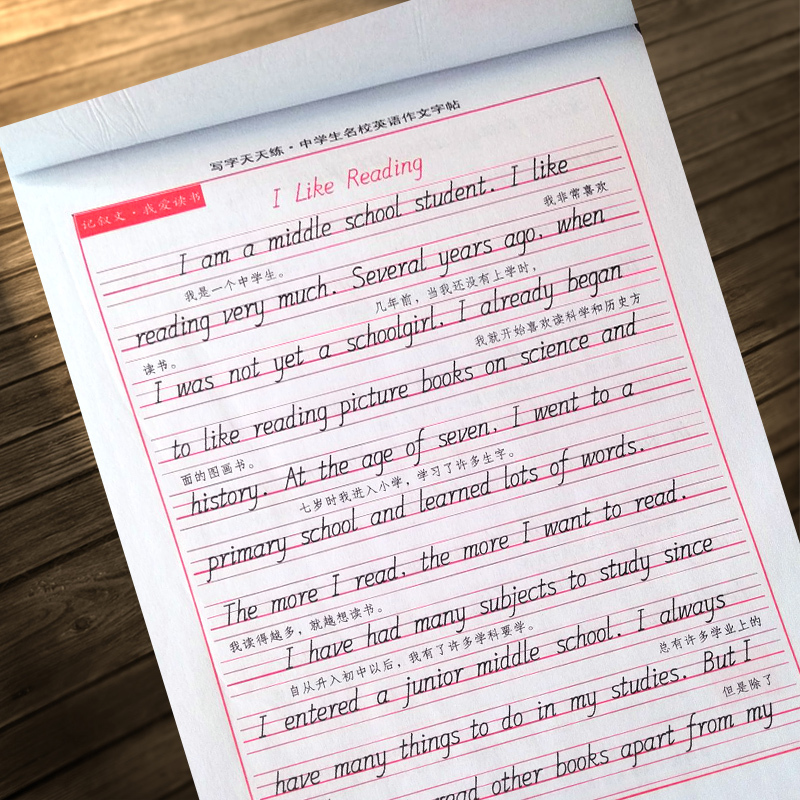 写字天天练·中学生名校英语作文字帖
记叙文·我爱读书
I Like Reading
I am a middle school student. I like
我是一个中学生。 我非常喜欢
reading very much. Several years ago, when
读书。 几年前，当我还没有上学时，
I was not yet a schoolgirl, I already began
我就开始喜欢读科学和历史方
to like reading picture books on science and
面的图画书。
history. At the age of seven, I went to a
七岁时我进入小学，学习了许多生字。
primary school and learned lots of words.
The more I read, the more I want to read.
我读得越多，就越想读书。
I have had many subjects to study since
自从升入初中以后，我有了许多学科要学。
I entered a junior middle school. I always
总有许多学业上的
have many things to do in my studies. But I
但是除了
read other books apart from my